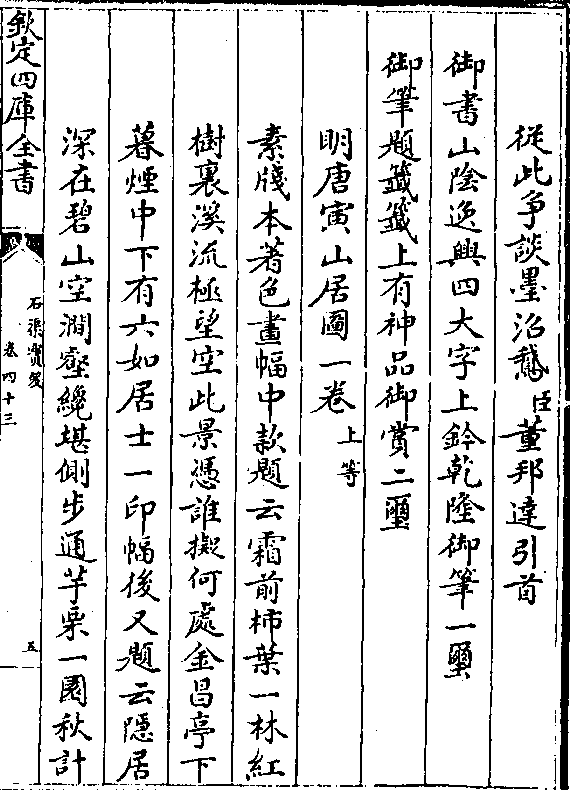 從此爭談墨沼鵝臣董邦達引首
御書山陰逸興四大字上鈐乾隆御筆一璽
御筆題籤籤上有神品御賞二璽
明唐寅山居圖一卷上等
素牋本著色畫幅中款題云霜前柿葉一林紅
樹裏溪流極望空此景憑誰擬何處金昌亭下
暮煙中下有六如居士一印幅後又題云隱居
深在碧山空澗壑纔堪側步通芋栗一園秋計
欽定四庫全書
石渠寶笈
卷四十三
五